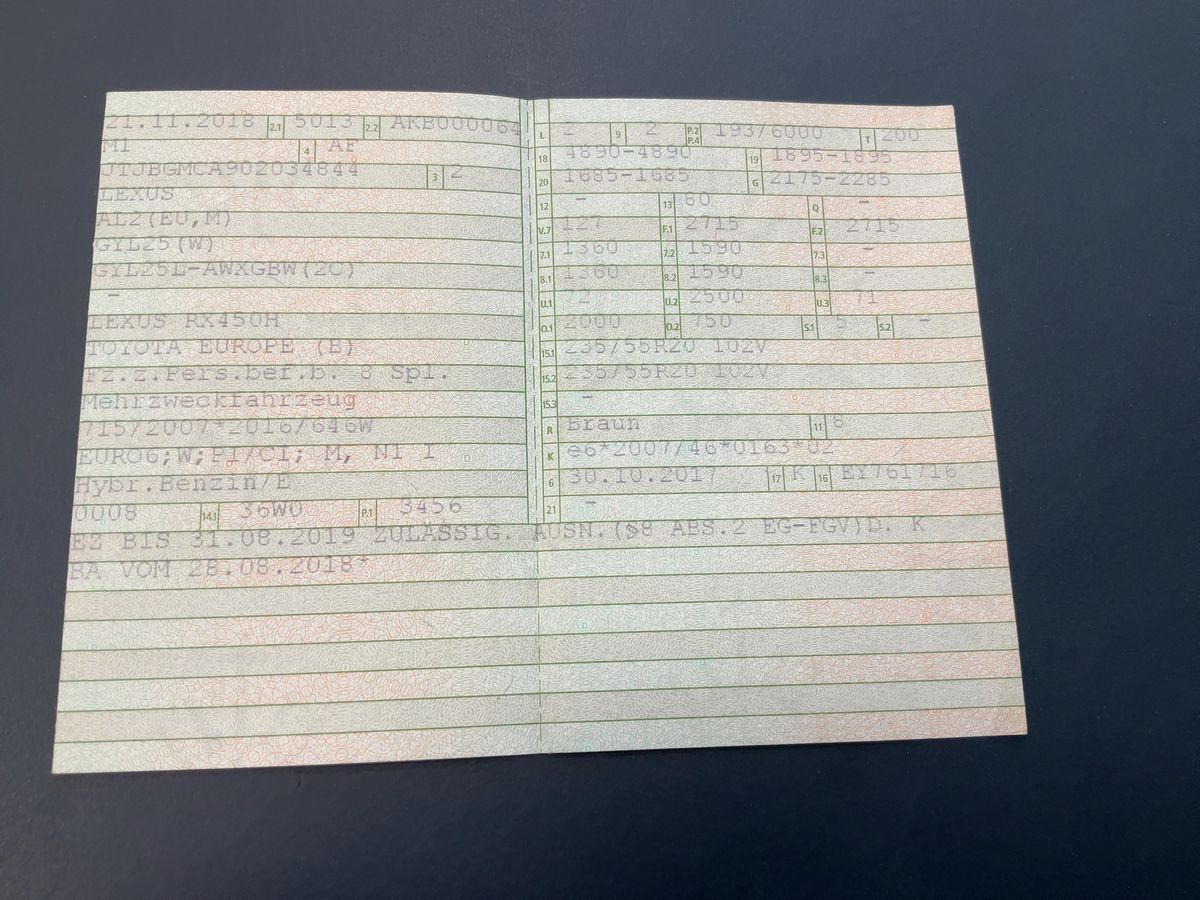 21.11.2018 2.1 5013 2.2 AKB000064
M1 4 AF
JTJBGMCA902034844 3 2
LEXUS
AL2(EU,M)
GYL25(W)
GYL25L-AWXGBW(2C)
-
LEXUS RX450H
TOYOTA EUROPE (B)
Fz.z.Pers.bef.b. 8 Spl.
Mehrzweckfahrzeug
715/2007*2016/646W
EURO6;W;PI/CI; M, N1 I
Hybr.Benzin/E
0008 14.1 36W0 P.1 3456
L 2 9 2 P.2 P.4 193/6000 T 200
18 4890-4890 19 1895-1895
20 1685-1685 G 2175-2285
12 - 13 80 Q -
V.7 127 F.1 2715 F.2 2715
7.1 1360 7.2 1590 7.3 -
8.1 1360 8.2 1590 8.3 -
U.1 72 U.2 2500 U.3 71
O.1 2000 O.2 750 S.1 5 S.2 -
15.1 235/55R20 102V
15.2 235/55R20 102V
15.3 -
R Braun 11 8
K e6*2007/46*0163*02
6 30.10.2017 17 K 16 EY761716
21 -
BZ BIS 31.08.2019 ZULÄSSIG. AUSN.(§8 ABS.2 EG-FGV)D. K
BA VOM 28.08.2018*